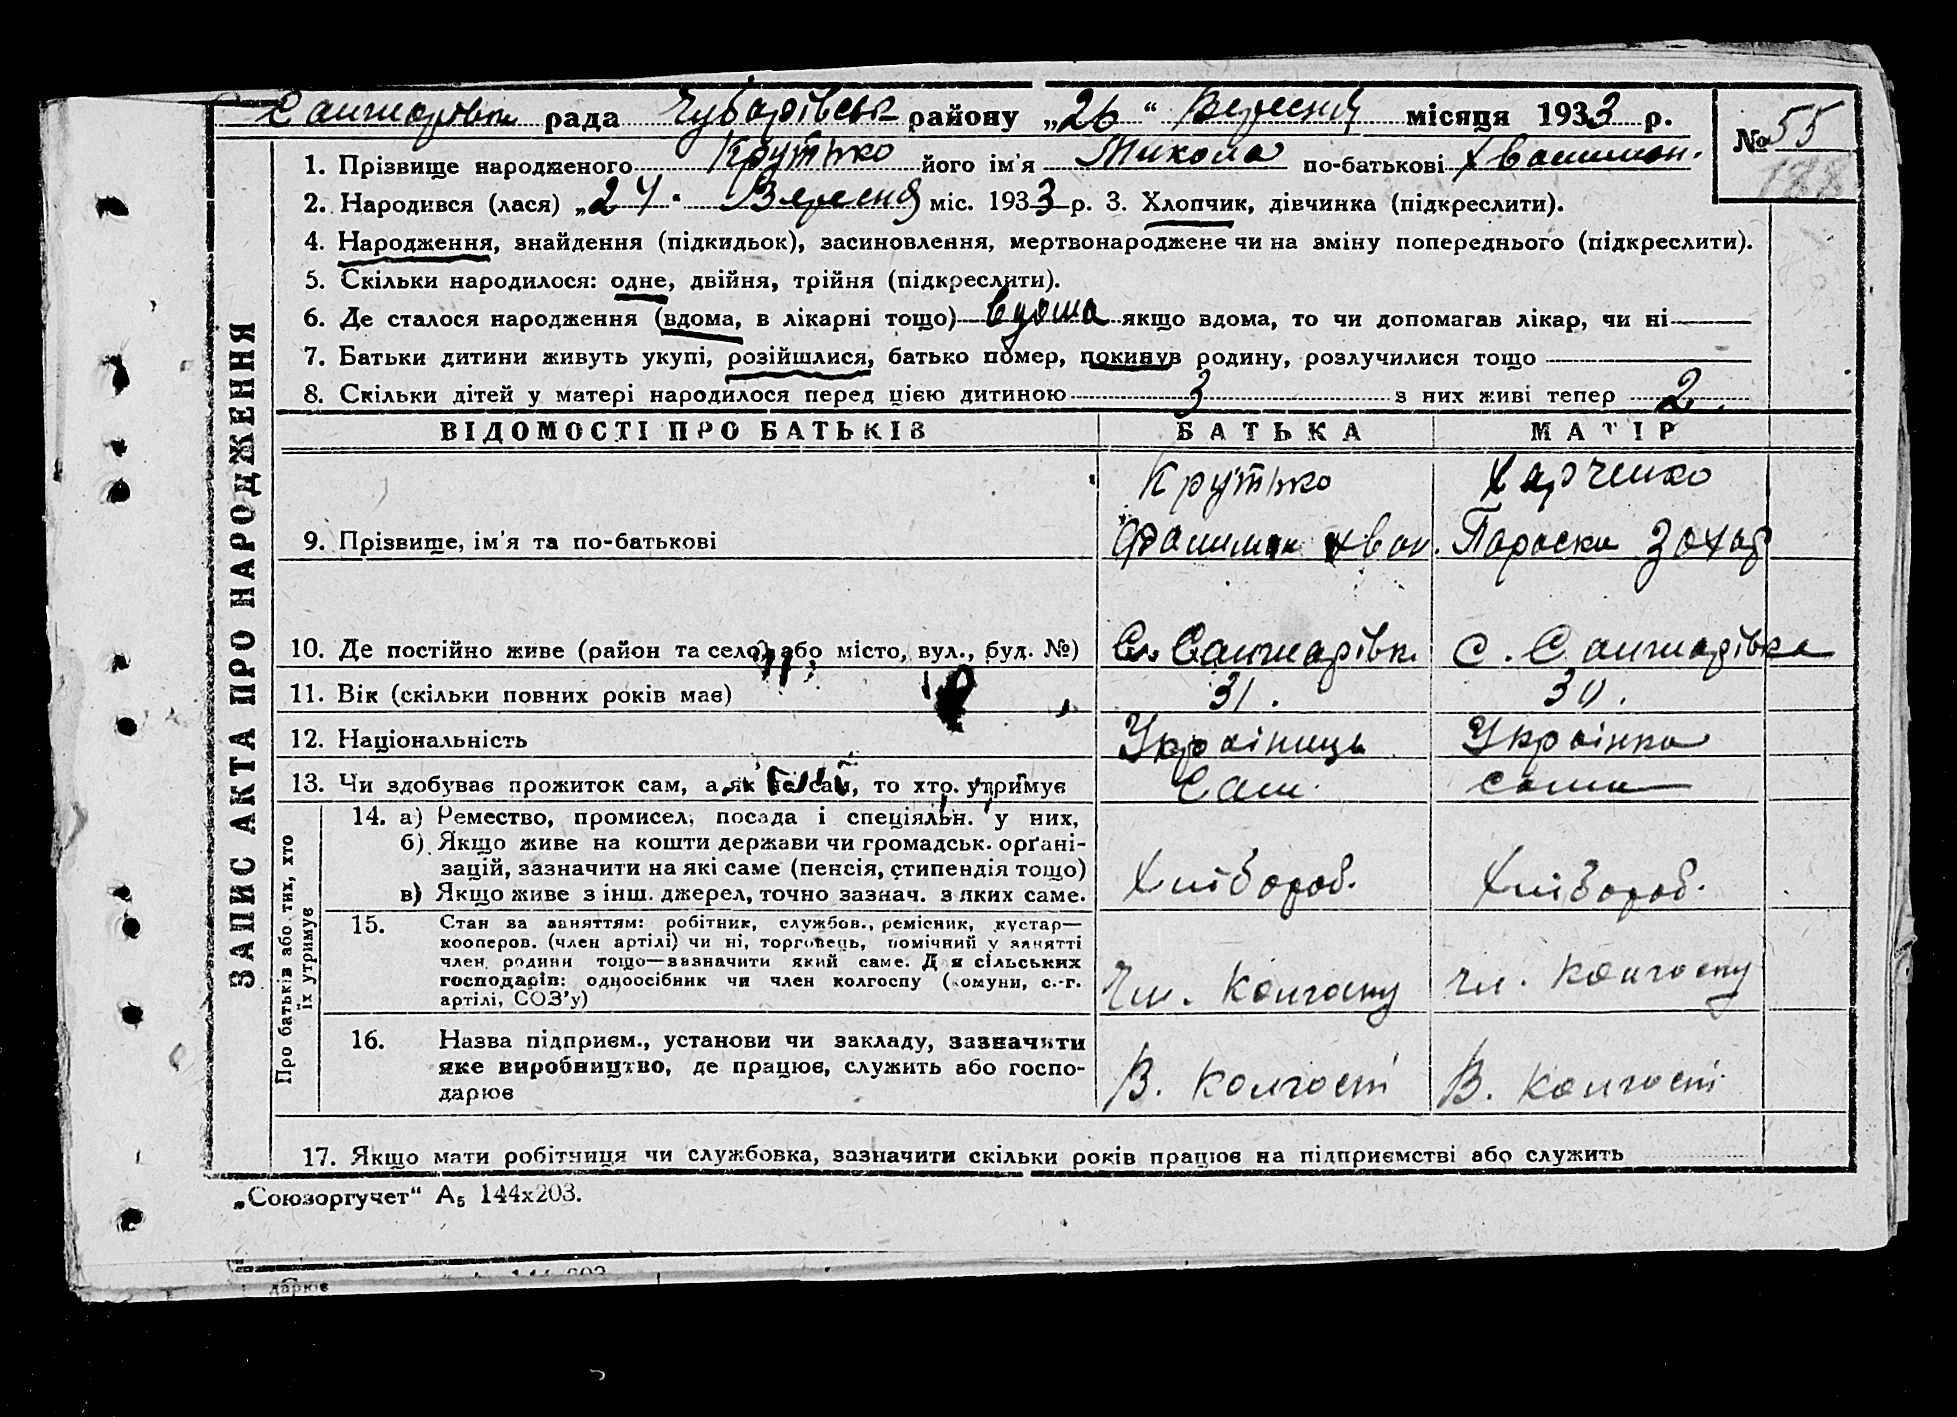 Санжарівськ рада Чубарівськ району „26“ Вересня місяця 1933 р.
№ 55
188
1. Прізвище народженого Крутько його ім'я Микола по-батькові Хвалимон.
2. Народився (лася) „24“ Вересня міс. 1933 р. 3. Хлопчик, дівчинка (підкреслити).
4. Народження, знайдення (підкидьок), засиновлення, мертвонароджене чи на зміну попереднього (підкреслити).
5. Скільки народилося: одне, двійня, трійня (підкреслити).
6. Де сталося народження (вдома, в лікарні тощо) вдома якщо вдома, то чи допомагав лікар, чи ні
7. Батьки дитини живуть укупі, розійшлися, батько помер, покинув родину, розлучилися тощо
8. Скільки дітей у матері народилося перед цією дитиною 3 з них живі тепер 2.
ВІДОМОСТІ ПРО БАТЬКІВ БАТЬКА МАТІР
Крутько Харченко
9. Прізвище, ім'я та по-батькові Іван. Параска Захар
10. Де постійно живе (район та село, або місто, вул., буд. №) С. Санжарівк. С. Санжарівка
11. Вік (скільки повних років має) 31. 30.
12. Національність Українець Українка
13. Чи здобуває прожиток сам, а як не сам, то хто утримує Сам сама
14. а) Ремество, промисел, посада і спеціяльн. у них,
б) Якщо живе на кошти держави чи громадськ. орґані-
зацій, зазначити на які саме (пенсія, стипендія тощо) Хлібороб. Хлібороб.
в) Якщо живе з інш. джерел, точно зазнач. з яких саме.
15. Стан за заняттям: робітник, службов., ремісник, кустар—
кооперов. (член артілі) чи ні, торговець, помічний у занятті
член родини тощо—зазначити який саме. Для сільських
господарів: одноосібник чи член колгоспу (комуни, с.-г.
артілі, СОЗ'у) Чл. колгоспу Чл. колгоспу
16. Назва підприєм., установи чи закладу, зазначити
яке виробництво, де працює, служить або госпо-
дарює В. колгоспі В. колгоспі
17. Якщо мати робітниця чи службовка, зазначити скільки років працює на підприємстві або служить
ЗАПИС АКТА ПРО НАРОДЖЕННЯ
Про батьків або тих, хто
їх утримує
„Союзоргучет“ А₅ 144х203.
дарює